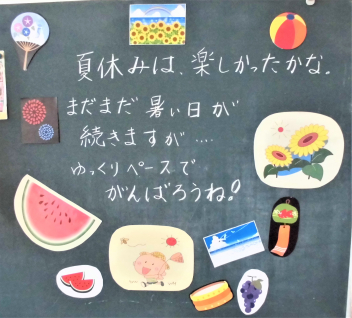 夏休みは、楽しかったかな。
まだまだ暑い日が
続きますが…
ゆっくりペースで
がんばろうね！